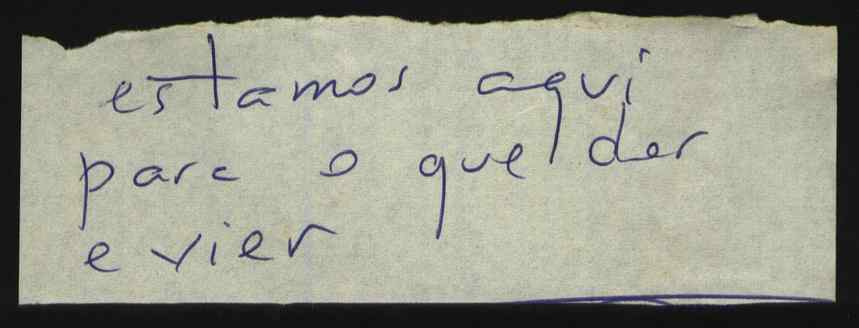 estamos aqui
para o que der
e vier